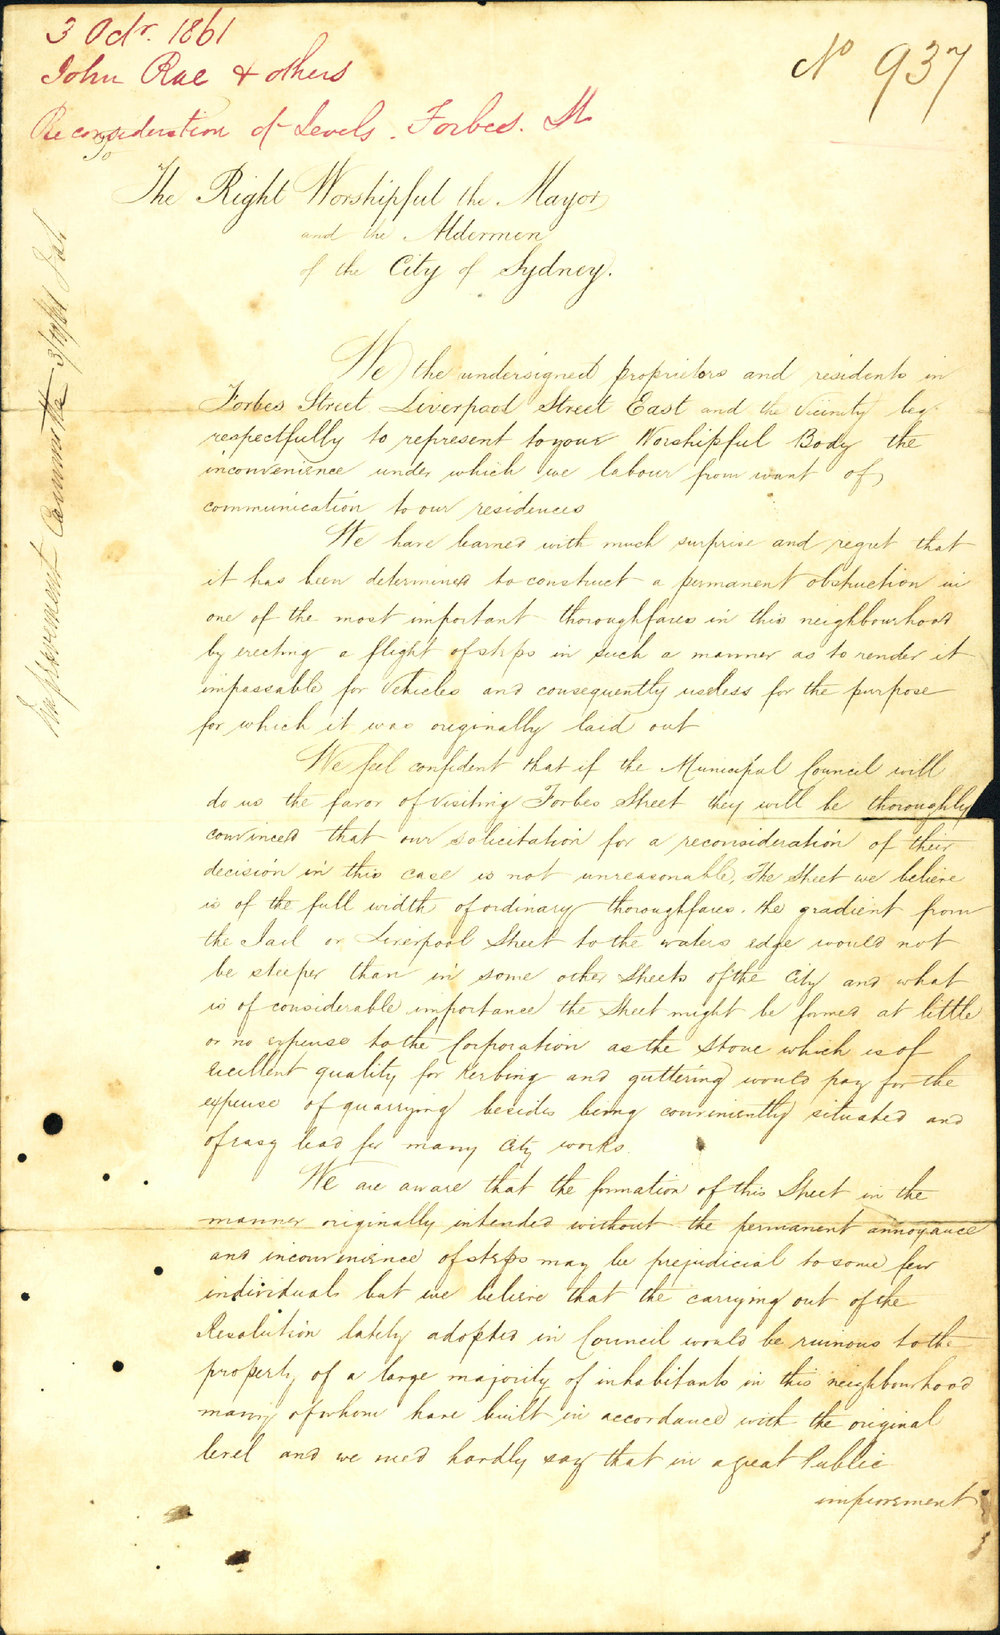 3 Octr. 1861
John Rae & others
Reconsideration of Levels. Forbes. St
No 937
To
The Right Worshipful the Mayor
and the Aldermen
of the City of Sydney.
Improvement Committee 3/10/61
We the undersigned proprietors and residents in
Forbes Street Liverpool Street East and the vicinity beg
respectfully to represent to your Worshipful Body the
inconvenience under which we labour from want of
communication to our residences
We have learned with much surprise and regret that
it has been determined to construct a permanent obstruction in
one of the most important thoroughfares in this neighbourhood
by erecting a flight of steps in such a manner as to render it
impassable for Vehicles and consequently useless for the purpose
for which it was originally laid out
We feel confident that if the Municipal Council will
do us the favor of visiting Forbes Street they will be thoroughly
convinced that our solicitation for a reconsideration of their
decision in this case is not unreasonable, The Street we believe
is of the full width of ordinary thoroughfares. the gradient from
the Jail or Liverpool Street to the waters edge would not
be steeper than in some other Streets of the City and what
is of considerable importance the Street might be formed at little
or no expense to the Corporation as the Stone which is of
excellent quality for kerbing and guttering would pay for the
expense of quarrying besides being conveniently situated and
of easy lead for many City works.
We are aware that the formation of this Street in the
manner originally intended without the permanent annoyance
and inconvenience of steps may be prejudicial to some few
individuals but we believe that the carrying out of the
Resolution lately adopted in Council would be ruinous to the
property of a large majority of inhabitants in this neighbourhood
many of whom have built in accordance with the original
level and we need hardly say that in a great Public
improvement